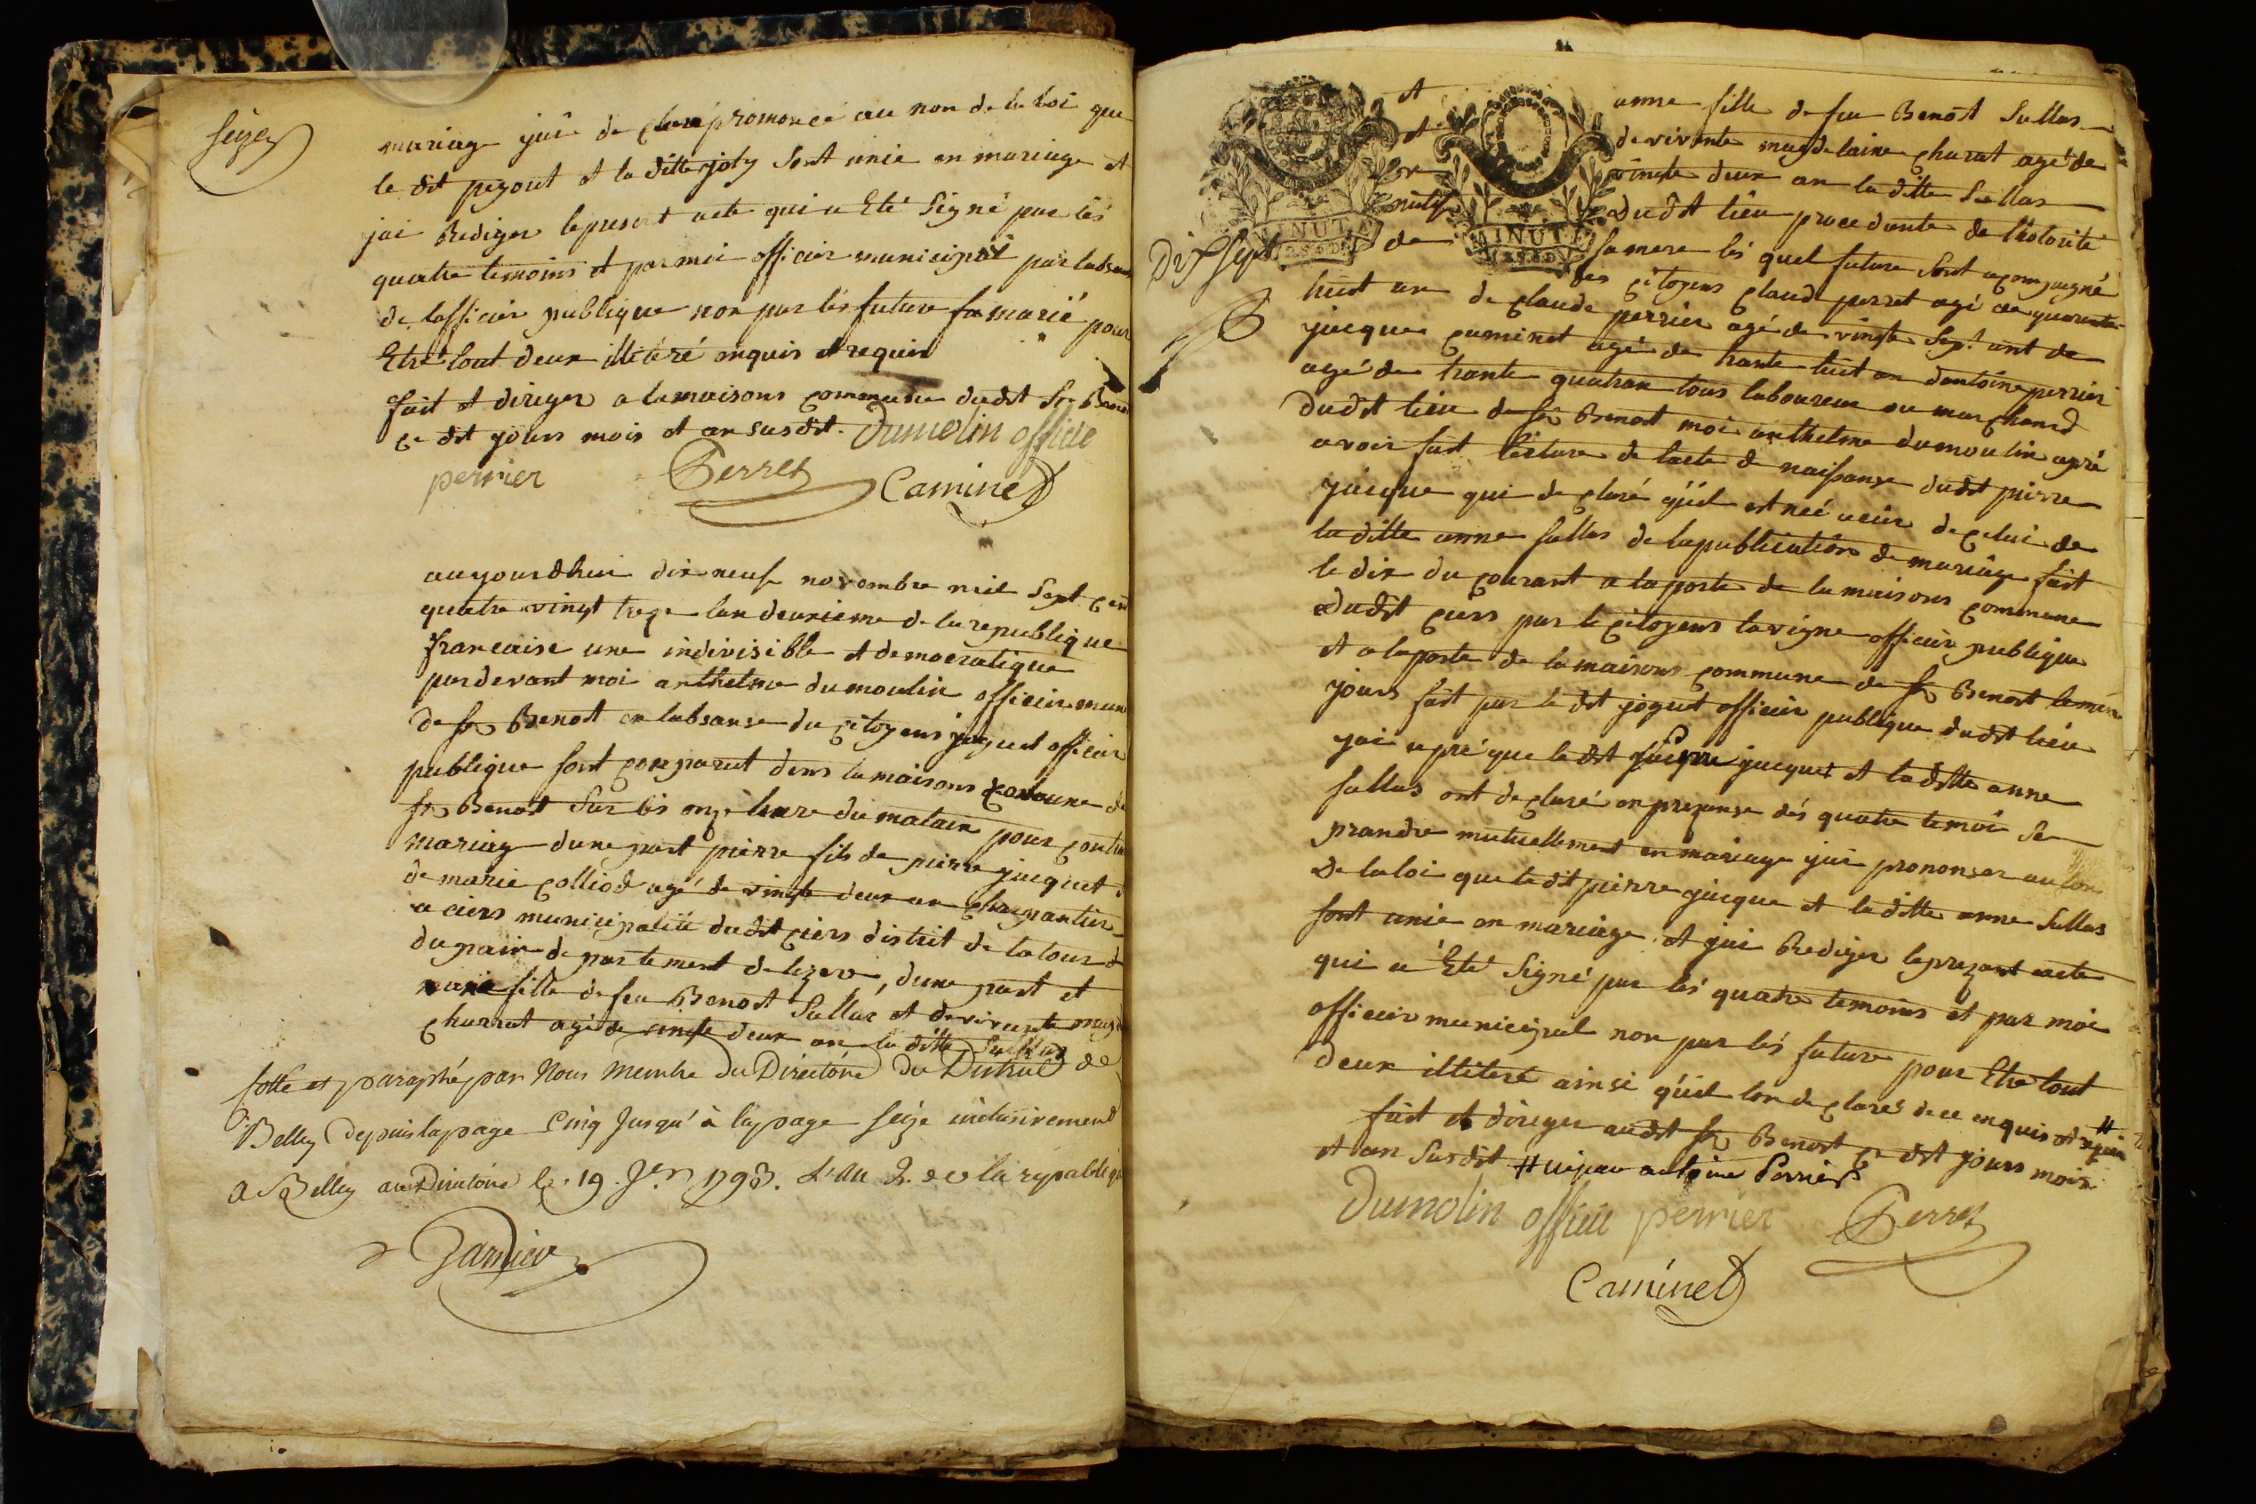 seize
mariage jai de claré promoncé au non de la loi que
le dit pezout et la ditte joly sont unie en mariage et
jai Rediger le present acte qui a Eté Signé par les
quatre temoins et par moi officier municipal par labsan
de lofficier publique non par lés future fa marié pour
Etre tout deux illiteré enquis et requis
fait et diriger a la maisons commune dudit St Benoit
ce dit yours mois et an susdit. Dumolin officie
perrier Perret Caminet
auyourdhui dix neuf novembre mil Sept cent
quatre vingt treze lan deuxieme de la republique
francaise une indivisible et democratique
pardevant moi anthelme dumoulin officier mun
de St Benoit en labsanse du citoyens joguet officier
publique sont comparut dans la maisons commune de
St Benoit Sur lés onze hure du matain pour contra
mariage dune part pierre fils de pierre jacquet
de marie colliod agé de vingte deux an charpantier
a ciers municipalité dudit ciers distrit de la tour d
du pain de partement de lizere, dune part et
marie fille de feu Benoit Sallas et de vivante mag
charrat agé de vingte deux an la ditte Sallas
Cotté et paraphé par Nous Membre du Directoire du District de
Belley depuis la page Cinq Jusqu'à la page Seize inclusivement
A Belley au Directoire le 19 Jer 1793. L'an 2. de la republique
Garnier
Dix Sept
MINUTE
MINUTE
et
et
de
anne fille de feu Benoit Sallas
de vivante magdelaine charat agé de
vingte deux an la ditte Sallas
dudit lieu procedante de lhotorité
sa mere lés quel future Sont acompagné
des citoyens claud perret agé de quarante
huit an de claude perrier agé de vingte Sept ant de
jacque caminet agé de trante huit an dantoine perrier
agé de trante quatran tous laboureur ou marchand
dudit lieu de St Benoit moi anthelme dumoulin apré
avoir fait lecture de lacte de naissanse dudit pierre
jacque qui de claré qu'il est née a cier de celui de
la ditte anne Sallas de la publication de mariage fait
le dix du courant a la porte de la maisons commune
dudit ciers par le citoyens lavigne officier publique
et a la porte de la maisons commune de St Benoit le mem
yours fait par le dit joguet officier publique dudit lieu
jai apré que le dit pierre jacquet et la ditte anne
Sallas ont de claré en prezanse dés quatre temoin Se
prandre mutuellement en mariage jai prononser au non
de la loi que le dit pierre jacque et la ditte anne Sallas
sont unie en mariage et jai Rediger le prezant acte
qui a Eté Signé par lés quatre temoins et par moi
officier municipal non par lés future pour Etre tout
deux illiteré ainsi qu'il lon de claré de ce enquis et requis #
fait et diriger audit St Benoit ce dit yours mois
et an Susdit # antoine Perrier
Dumolin officie perrier Perret
Caminet